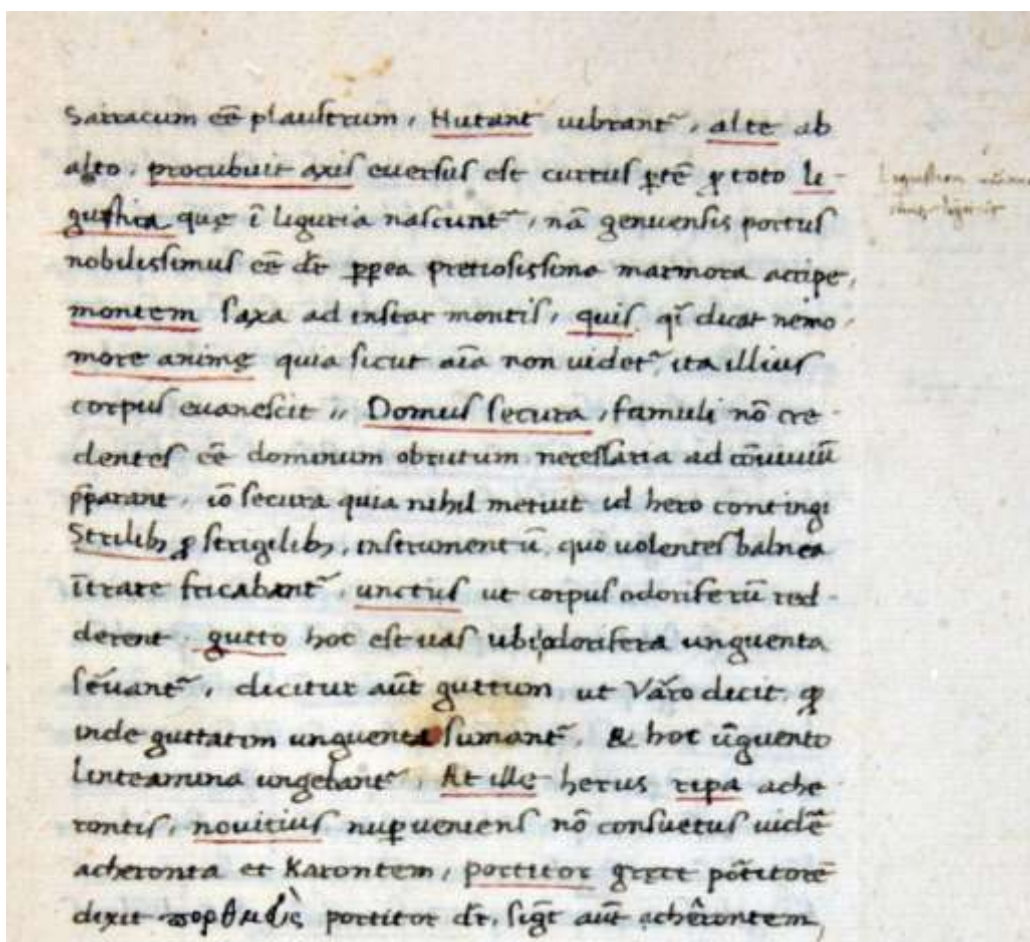 Sarracum eē plaustrum, Nutant uibrant᷑, alte ab
alto, procubuit axis euersus est currus ꝑtē ꝓ toto li-
gustica quę ī liguria nascunt᷑, nā genuensis portus
nobilissimus eē dr̄ ꝓpea pretiosissima marmora accipe,
montem saxa ad instar montis, quis qi dicat nemo,
more animę quia sicut aīa non uidet᷑, ita illius
corpus euanescit,, Domus secura, famuli nō cre-
dentes eē dominum obrutum necessaria ad cōuiuiū
p̄parant, iō secura quia nihil metuit id hero contingi
Strilibꝫ ꝓ strigilibꝫ, instrumentū, quo uolentes balnea
ītrare fricabant᷑, unctus ut corpus odoriferū red-
derent, gutto hoc est uas ubi odorifera unguenta
sēuant᷑, dicitur aūt guttum ut Vāro dicit, ꝙ
inde guttatim unguenta sumant᷑, & hoc ūguento
linteamina ungebant᷑, At ille herus ripa ache
rontis, nouitius nuꝑ ueniens nō consuetus uidē
acheronta et Karontem, portitor gręce pōtitorē
dixit portitor dr̄, sigt aūt acherontem,
Ligusticon